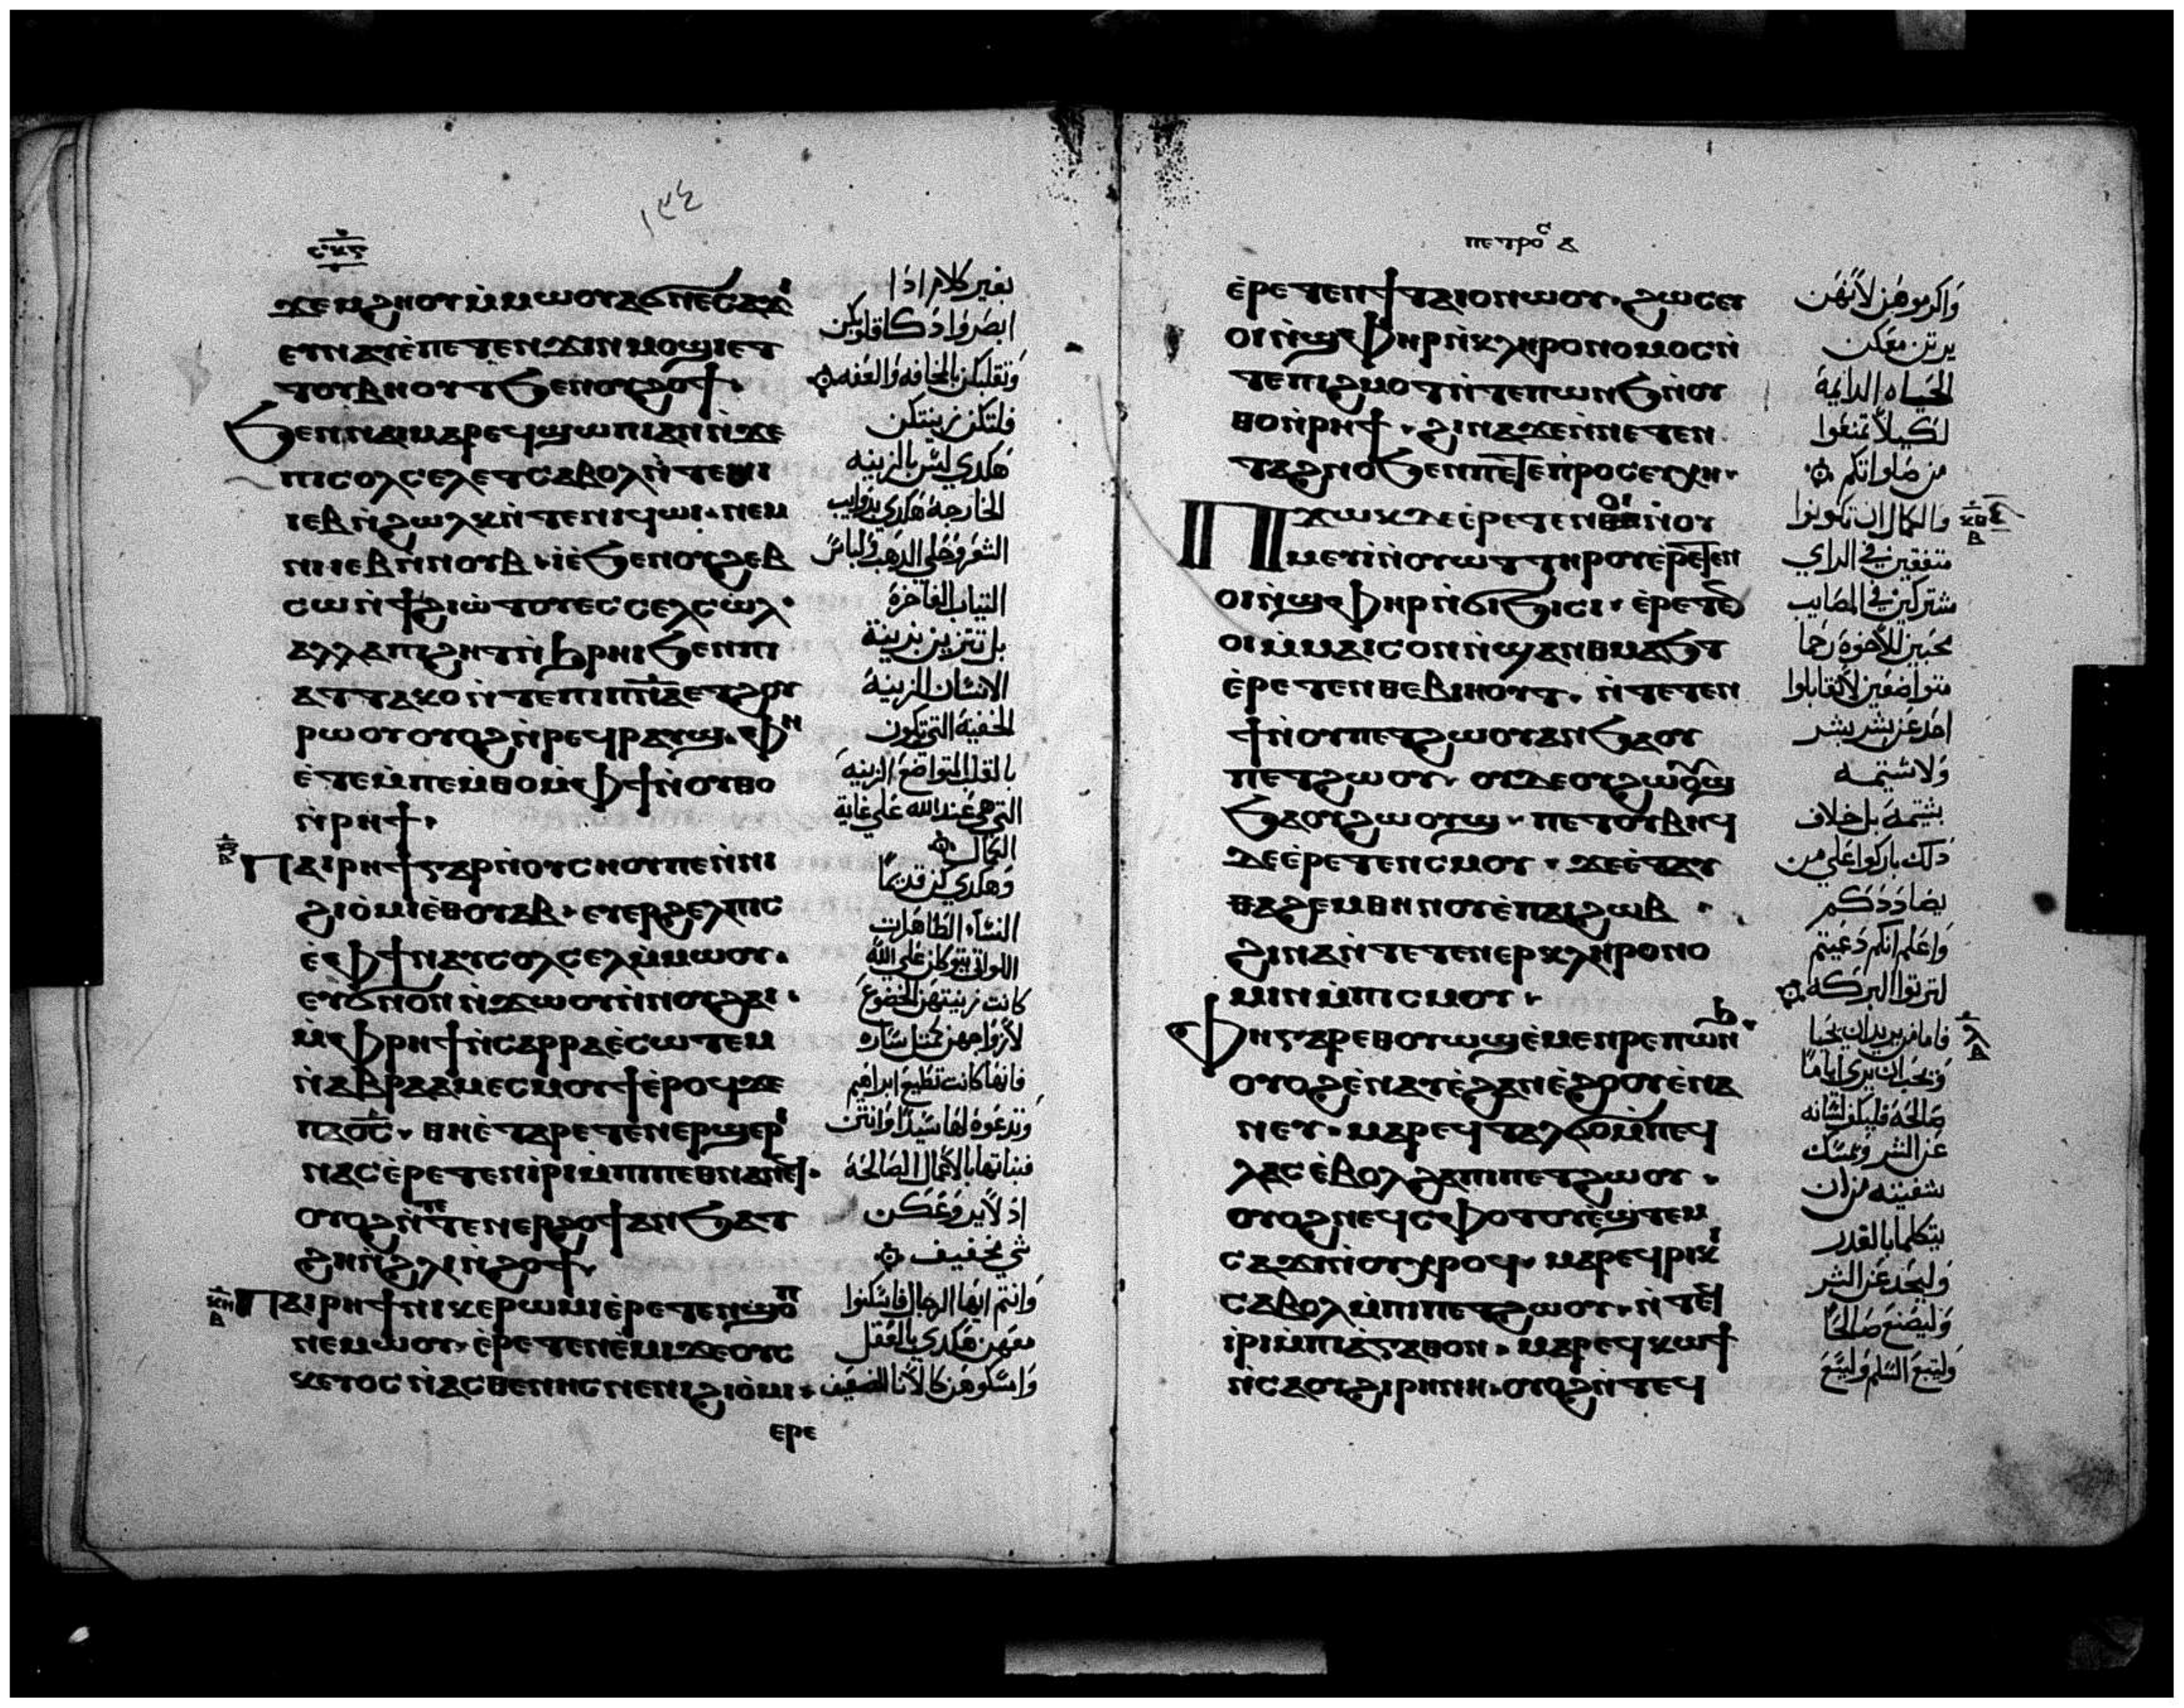 ١٣٤
ⲥⲕⲋ
ϫⲉⲙϩⲏⲟⲩⲙ̀ⲙⲱⲟⲩⲁϭⲛⲉⲥⲁϫⲓ
ⲉⲩⲛⲁⲩⲉ̀ⲡⲉⲧⲉⲛϫⲓⲛⲙⲟϣⲓⲉⲧ
ⲧⲟⲩⲃⲏⲟⲩⲧϧⲉⲛⲟⲩϩⲟϯ·
ϧⲉⲛⲛⲁⲓⲙⲁⲣⲉϥϣⲱⲡⲓⲁⲛⲛ̀ϫⲉ
ⲡⲓⲥⲟⲗⲥⲉⲗⲉⲧⲥⲁⲃⲟⲗⲛ̀ⲧⲉⲛⲓ
ⲓⲉⲃⲛ̀ϩⲱⲗⲕⲛ̀ⲧⲉⲛⲓϥⲱⲓ·ⲛⲉⲙ
ⲛⲓⲓⲉⲃⲛ̀ⲛⲟⲩⲃ·ⲓⲉ̀ϧⲉⲛⲟⲩϩⲉⲃ
ⲥⲱⲛ̀ϯϩⲓⲱ̀ⲧⲟⲩⲉⲥⲥⲉⲗⲥⲱⲗ·
ⲁⲗⲗⲁⲡⲓϩⲏⲧⲛ̀ϧⲣⲏⲓϧⲉⲛⲡⲓ
ⲁⲧⲧⲁⲕⲟⲛ̀ⲧⲉⲡⲓⲡⲛ̅ⲁⲉⲧϩⲟⲩ
ⲣⲱⲟⲩⲟⲩⲟϩⲛ̀ⲣⲉϥⲣⲁⲩϣ·ⲫⲏ
ⲉ̀ⲧⲉⲙ̀ⲡⲉⲙ̀ⲑⲟⲙ̀ⲫϯⲛ̀ⲟⲩⲑⲟ
ⲛ̀ⲣⲏϯ·
ⲡⲁⲓⲣⲏϯⲅⲁⲣⲛ̀ⲟⲩⲥⲏⲟⲩⲡⲉⲛ̀ⲛⲓ
ϩⲓⲟ̀ⲙⲓⲉ̀ⲑⲟⲩⲁⲃ·ⲉⲩⲉⲣϩⲉⲗⲡⲓⲥ
ⲉ̀ⲫϯⲛⲁⲩⲥⲟⲗⲥⲉⲗⲙ̀ⲙⲱⲟⲩ·
ⲉⲩϭⲛⲟⲛ̀ⲛ̀ϫⲱⲟⲩⲛ̀ⲛⲟⲩϩⲁⲓ·
ⲙ̀ⲫⲣⲏϯⲛ̀ⲥⲁⲣⲣⲁⲉ̀ⲥⲱⲧⲉⲙ
ⲛ̀ⲁⲃⲣⲁⲁⲙⲉⲥⲙⲟⲩϯⲉ̀ⲣⲟϥϫⲉ
ⲡⲁϭⲥ̅·ⲑⲏⲉ̀ⲧⲁⲣⲉⲧⲉⲛⲉⲣϣⲉⲣⲓ
ⲛⲁⲥⲉ̀ⲣⲉⲧⲉⲛⲓ̀ⲣⲓⲙ̀ⲡⲓⲡⲉⲑⲛⲁⲛⲉϥ·
ⲟⲩⲟϩⲛ̀ⲧⲉⲧⲉⲛⲉⲣϩⲟϯⲁⲛϧⲁⲧ
ϩⲏⲛ̀ϩⲗⲓⲛ̀ϩⲟϯ·
ⲕⲏ
ⲃ
ⲡⲁⲓⲣⲏϯⲛⲓⲕⲉⲣⲱⲙⲓⲉ̀ⲣⲉⲧⲉⲛϣⲟⲡ
ⲛⲉⲙⲱⲟⲩ·ⲉ̀ⲣⲉⲧⲉⲛⲉ̀ⲙⲓϫⲉⲟⲩⲥ
ⲕⲉⲩⲟⲥⲛ̀ⲁⲥⲑⲉⲛⲏⲥⲛⲉⲛⲓϩⲓⲟ̀ⲙⲓ·
ⲉⲣⲉ
بغير كلام اذا
ابصروا ذكا قلوبكن
وتقلبكن بالمخافه والعفه
فلتكن زينتكن
هكدي ليس بالزينه
الخارجة هكدي بذوايب
الشعر وحلي الدهب ولباس
الثياب الفاخرة
بل تتزين بزينة
الانسان الزينة
الخفية التي تكون
بالقلب المتواضع الزينه
التي هي عند الله علي غاية
الكمال
وهكدي كن قديما
النساء الطاهرات
اللواتي يتوكلن علي الله
كانت زينتهن الخضوع
لازواجهن كمثل ساره
فانها كانت تطيع ابراهيم
وتدعوه لها سيدا وانتن
فبناتها بالاعمال الصالحة
اذ لا يروعكن
شي مخيف
وانتم ايها الرجال فاسكنوا
معهن هكدي بالعقل
وامسكوهن كالانا الضعيف
ⲡⲉⲧⲣⲟⲥ ⲁ
ⲉ̀ⲣⲉⲧⲉⲛϯⲧⲁⲓⲟⲛⲱⲟⲩ·ϩⲱⲥⲉⲩ
ⲟⲓⲛ̀ϣⲫⲏⲣⲛ̀ⲕⲗⲏⲣⲟⲛⲟⲙⲟⲥⲛ̀
ⲧⲉⲡⲓϩⲙⲟⲧⲛ̀ⲧⲉⲡⲱⲛϧⲛ̀ⲟⲩ
ⲑⲟⲛ̀ⲣⲏϯ·ϩⲓⲛⲁϫⲉⲛ̀ⲛⲉⲧⲉⲛ
ⲧⲁϩⲛⲟϧⲉⲛⲛⲉⲧⲉⲛⲡⲣⲟⲥⲉⲩⲭⲏ·
ⲡϫⲱⲕⲇⲉⲉ̀ⲣⲉⲧⲉⲛⲟⲓⲛ̀ⲟⲩ
ⲙⲉⲩⲓ̀ⲛ̀ⲟⲩⲱⲧⲧⲏⲣⲟⲩⲉ̀ⲣⲉⲧⲉⲛ
ⲟⲓⲛ̀ϣⲫⲏⲣⲛ̀ϭⲓϧⲓⲥⲓ·ⲉ̀ⲣⲉⲧⲉⲛ
ⲟⲓⲙ̀ⲙⲁⲓⲥⲟⲛⲛ̀ϣⲁⲛⲑⲙⲁϧⲧ
ⲉ̀ⲣⲉⲧⲉⲛⲑⲉⲃⲓⲏⲟⲩⲧ·ⲛ̀ⲧⲉⲧⲉⲛ
ϯⲛ̀ⲟⲩⲡⲉⲧϩⲱⲟⲩⲁⲛϧⲁⲟⲩ
ⲡⲉⲧϩⲱⲟⲩ·ⲟⲩⲇⲉⲟⲩϩⲱⲟⲩϣ
ϧⲁⲟⲩϩⲱⲟⲩϣ·ⲡⲉⲧⲟⲩⲃⲏϥ
ⲇⲉⲉ̀ⲣⲉⲧⲉⲛⲥⲙⲟⲩ·ϫⲉⲉ̀ⲧⲁⲩ
ⲑⲁϩⲉⲙⲑⲏⲛⲟⲩⲉ̀ⲡⲁⲓϩⲱⲃ·
ϩⲓⲛⲁⲛ̀ⲧⲉⲧⲉⲛⲉⲣⲕⲗⲏⲣⲟⲛⲟ
ⲙⲓⲛⲙ̀ⲡⲓⲥⲙⲟⲩ·
ⲫⲏⲅⲁⲣⲉⲑⲟⲩⲱϣⲉ̀ⲙⲉⲛⲣⲉⲡⲱⲛϧ·
ⲟⲩⲟϩⲉ̀ⲛⲁⲩⲉ̀ϩⲁⲛⲉ̀ϩⲟⲟⲩⲉ̀ⲛⲁ
ⲛⲉⲩ·ⲙⲁⲣⲉϥⲧⲁⲗϭⲟⲙ̀ⲡⲉϥ
ⲗⲁⲥⲉ̀ⲃⲟⲗϩⲁⲡⲓⲡⲉⲧϩⲱⲟⲩ·
ⲟⲩⲟϩⲛⲉϥⲥⲫⲟⲧⲟⲩⲉ̀ϣⲧⲉⲙ
ⲥⲁϫⲓⲛ̀ⲟⲩⲭⲣⲟϥ·ⲙⲁⲣⲉϥⲣⲓⲕⲓ
ⲥⲁⲃⲟⲗⲙ̀ⲡⲓⲡⲉⲧϩⲱⲟⲩ·ⲛ̀ⲧⲉϥ
ⲓ̀ⲣⲓⲙ̀ⲡⲓⲁ̀ⲅⲁⲑⲟⲛ·ⲙⲁⲣⲉϥⲕⲱϯ
ⲛ̀ⲥⲁⲟⲩϩⲓⲣⲏⲛⲏ·ⲟⲩⲟϩⲛ̀ⲧⲉϥ
واكرموهن لانهن
يرتن معكن
الحياه الدايمة
لكيلا تمنعوا
من صلواتكم
والكمال ان تكونوا
متفقين في الراي
مشتركين في المصايب
محبين للاخوة رحما
متواضعين لا تقابلوا
احد عن شر بشر
ولا شتيمه
بشتيمة بل خلاف
ذلك باركوا علي من
يضاددكم
واعلم انكم دعيتم
لترثوا البركه
فاما من يريد ان يحيا
ويحب ان يري اياما
صالحة فليكفف لسانه
عن الشر ويمسك
شفتيه من ان
يتكلما بالغدر
وليحد عن الشر
وليصنع صالحا
وليتبع السلم وليتبع